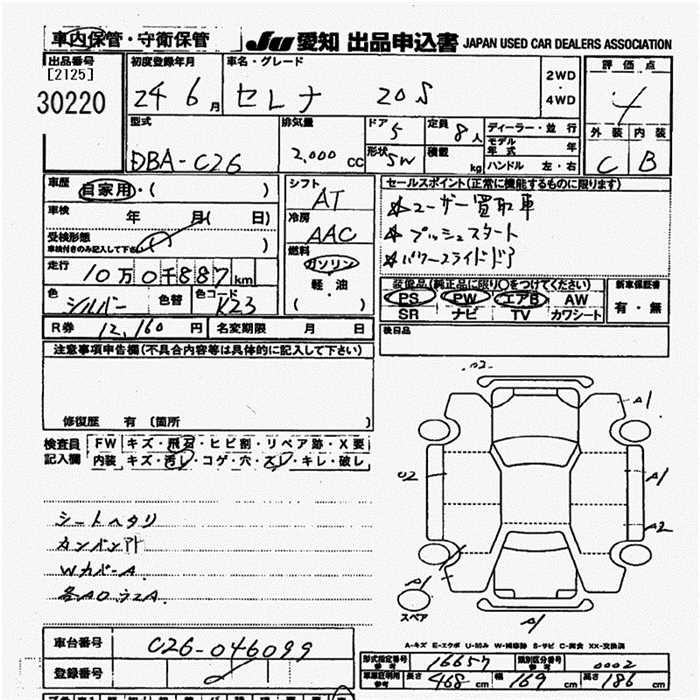 車内保管・守衛保管
JU 愛知 出品申込書 JAPAN USED CAR DEALERS ASSOCIATION
出品番号
[2125]
30220
初度登録年月
24 6月
車名・グレード
セレナ 20S
2WD
・
4WD
評価点
4
外装 内装
C B
型式
DBA-C26
排気量
2,000 CC
ドア 5
形状 SW
定員 8人
積載 kg
ディーラー・並行
モデル年式 年
ハンドル 左・右
車歴
自家用・( )
車検 年 月( 日)
受検形態
車検付きのみ記入して下さい
走行 10万0千887km
色 シルバー 色替 色コード K23
シフト
AT
冷房
AAC
燃料
ガソリン
軽・油
( )
R券 12,160 円 名変期限 月 日
セールスポイント(正常に機能するものに限ります)
☆ユーザー買取車
☆プッシュスタート
☆パワースライドドア
装備品(純正品に限り○をつけてください)
PS PW エアB AW
SR ナビ TV カワシート
新車保証書
有・無
後日品
注意事項申告欄(不具合内容等は具体的に記入して下さい)
修復歴 有 〔箇所 〕
検査員
記入欄
FW キズ・飛石・ヒビ割・リペア跡・X要
内装 キズ・汚レ・コゲ・穴・スレ・キレ・破レ
シートヘタリ
カンバンアト
WカバーA
各A0ラエA.
02
A1
02
A1
A2
A1
A1
スペア
A-キズ E-エクボ U-凹み W-補修跡 S-サビ C-腐食 XX-交換済
車台番号 C26-046099
登録番号
形式指定番号 参考 16657
類別区分番号 参考 0002
車庫証明用 参考 長さ 468 cm 幅 169 cm 高さ 186 cm